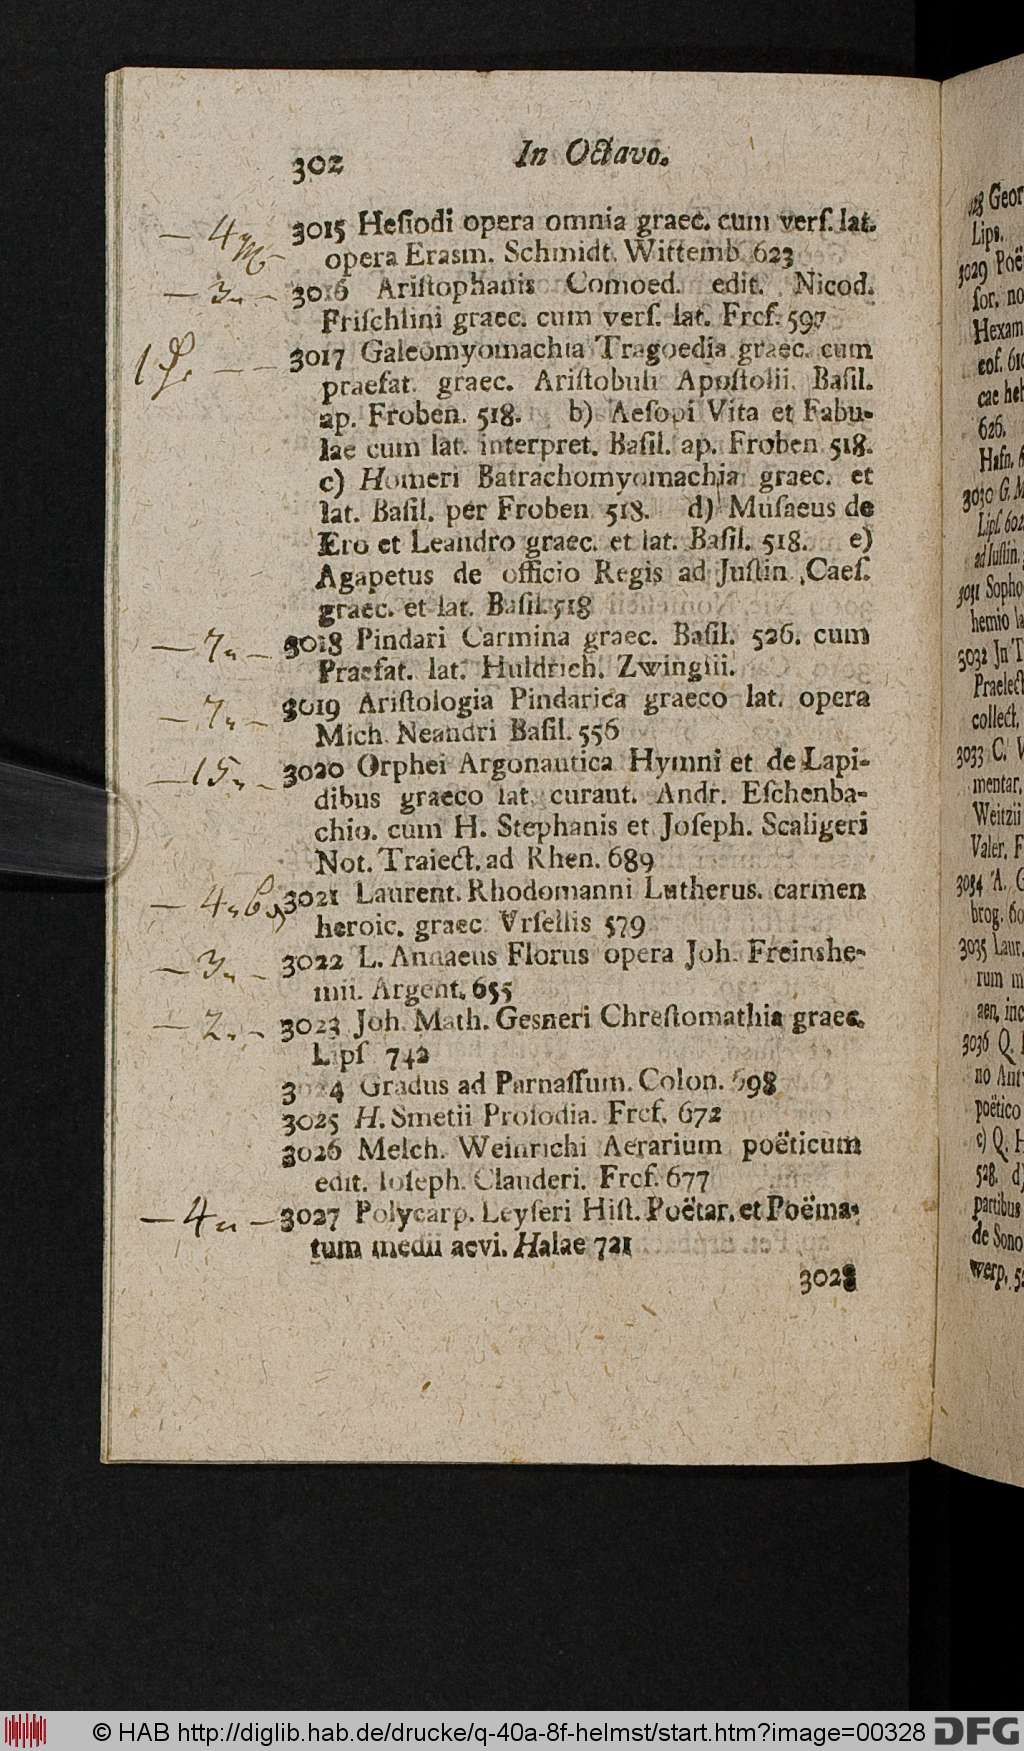 302 In Octavo.
— 4 3015 Heſiodi opera omnia graec. cum verſ. lat.
opera Erasm. Schmidt. Wittemb. 623
— 3 „ — 3016 Ariſtophanis Comoed. edit. Nicod.
Friſchlini graec. cum verſ. lat. Frcf. 597
1 — — 3017 Galeomyomachia Tragoedia graec. cum
praefat. graec. Ariſtobuli Apoſtolii. Baſil.
ap. Froben. 518. b) Aeſopi Vita et Fabu-
lae cum lat. interpret. Baſil. ap. Froben 518.
c) Homeri Batrachomyomachia graec. et
lat. Baſil. per Froben 518. d) Muſaeus de
Ero et Leandro graec. et lat. Baſil. 518. e)
Agapetus de officio Regis ad Juſtin. Caeſ.
graec. et lat. Baſil. 518
— 7 „ — 3018 Pindari Carmina graec. Baſil. 526. cum
Praefat. lat. Huldrich. Zwinglii.
— 7 „ — 3019 Ariſtologia Pindarica graeco lat. opera
Mich. Neandri Baſil. 556
— 15 „ — 3020 Orphei Argonautica Hymni et de Lapi-
dibus graeco lat. curant. Andr. Eſchenba-
chio. cum H. Stephanis et Joſeph. Scaligeri
Not. Traiect. ad Rhen. 689
— 4 „ 6 3021 Laurent. Rhodomanni Lutherus. carmen
heroic. graec Vrſellis 579
— 3 „ — 3022 L. Annaeus Florus opera Joh. Freinshe-
mii. Argent. 655
— 2 „ — 3023 Joh. Math. Gesneri Chreſtomathia graec.
Lipſ 742
3024 Gradus ad Parnaſſum. Colon. 698
3025 H. Smetii Proſodia. Frcf. 672
3026 Melch. Weinrichi Aerarium poëticum
edit. Ioſeph. Clauderi. Frcf. 677
— 4 „ — 3027 Polycarp. Leyſeri Hiſt. Poëtar. et Poëma-
tum medii aevi. Halae 721
3028
Geor
Lips.
3029 Poë
ſor. no
Hexam
eof. 610
cae heb
626.
Hafn. 6
3030 G. M
Lipſ. 602
ad Iuſtin.
3031 Sopho
hemio la
3032 Jn T
Praelect
collect.
3033 C. V
mentar.
Weitzii
Valer. F
3034 A. G
brog. 60
3035 Laur.
rum m
aen. inc
3036 Q. H
no Antv
poëtico
c) Q. H
528. d)
partibus
de Sono
werp. 5
© HAB http://diglib.hab.de/drucke/q-40a-8f-helmst/start.htm?image=00328 DFG